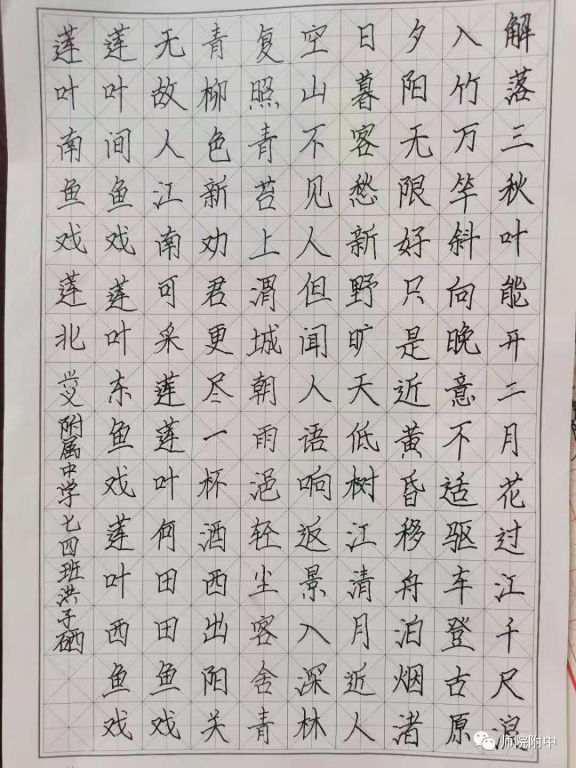 解落三秋叶能开二月花过江千尺浪
入竹万竿斜向晚意不适驱车登古原
夕阳无限好只是近黄昏移舟泊烟渚
日暮客愁新野旷天低树江清月近人
空山不见人但闻人语响返景入深林
复照青苔上渭城朝雨浥轻尘客舍青
青柳色新劝君更尽一杯酒西出阳关
无故人江南可采莲莲叶何田田鱼戏
莲叶间鱼戏莲叶东鱼戏莲叶西鱼戏
莲叶南鱼戏莲北
兴义附属中学七四班洪子硒
师院附中